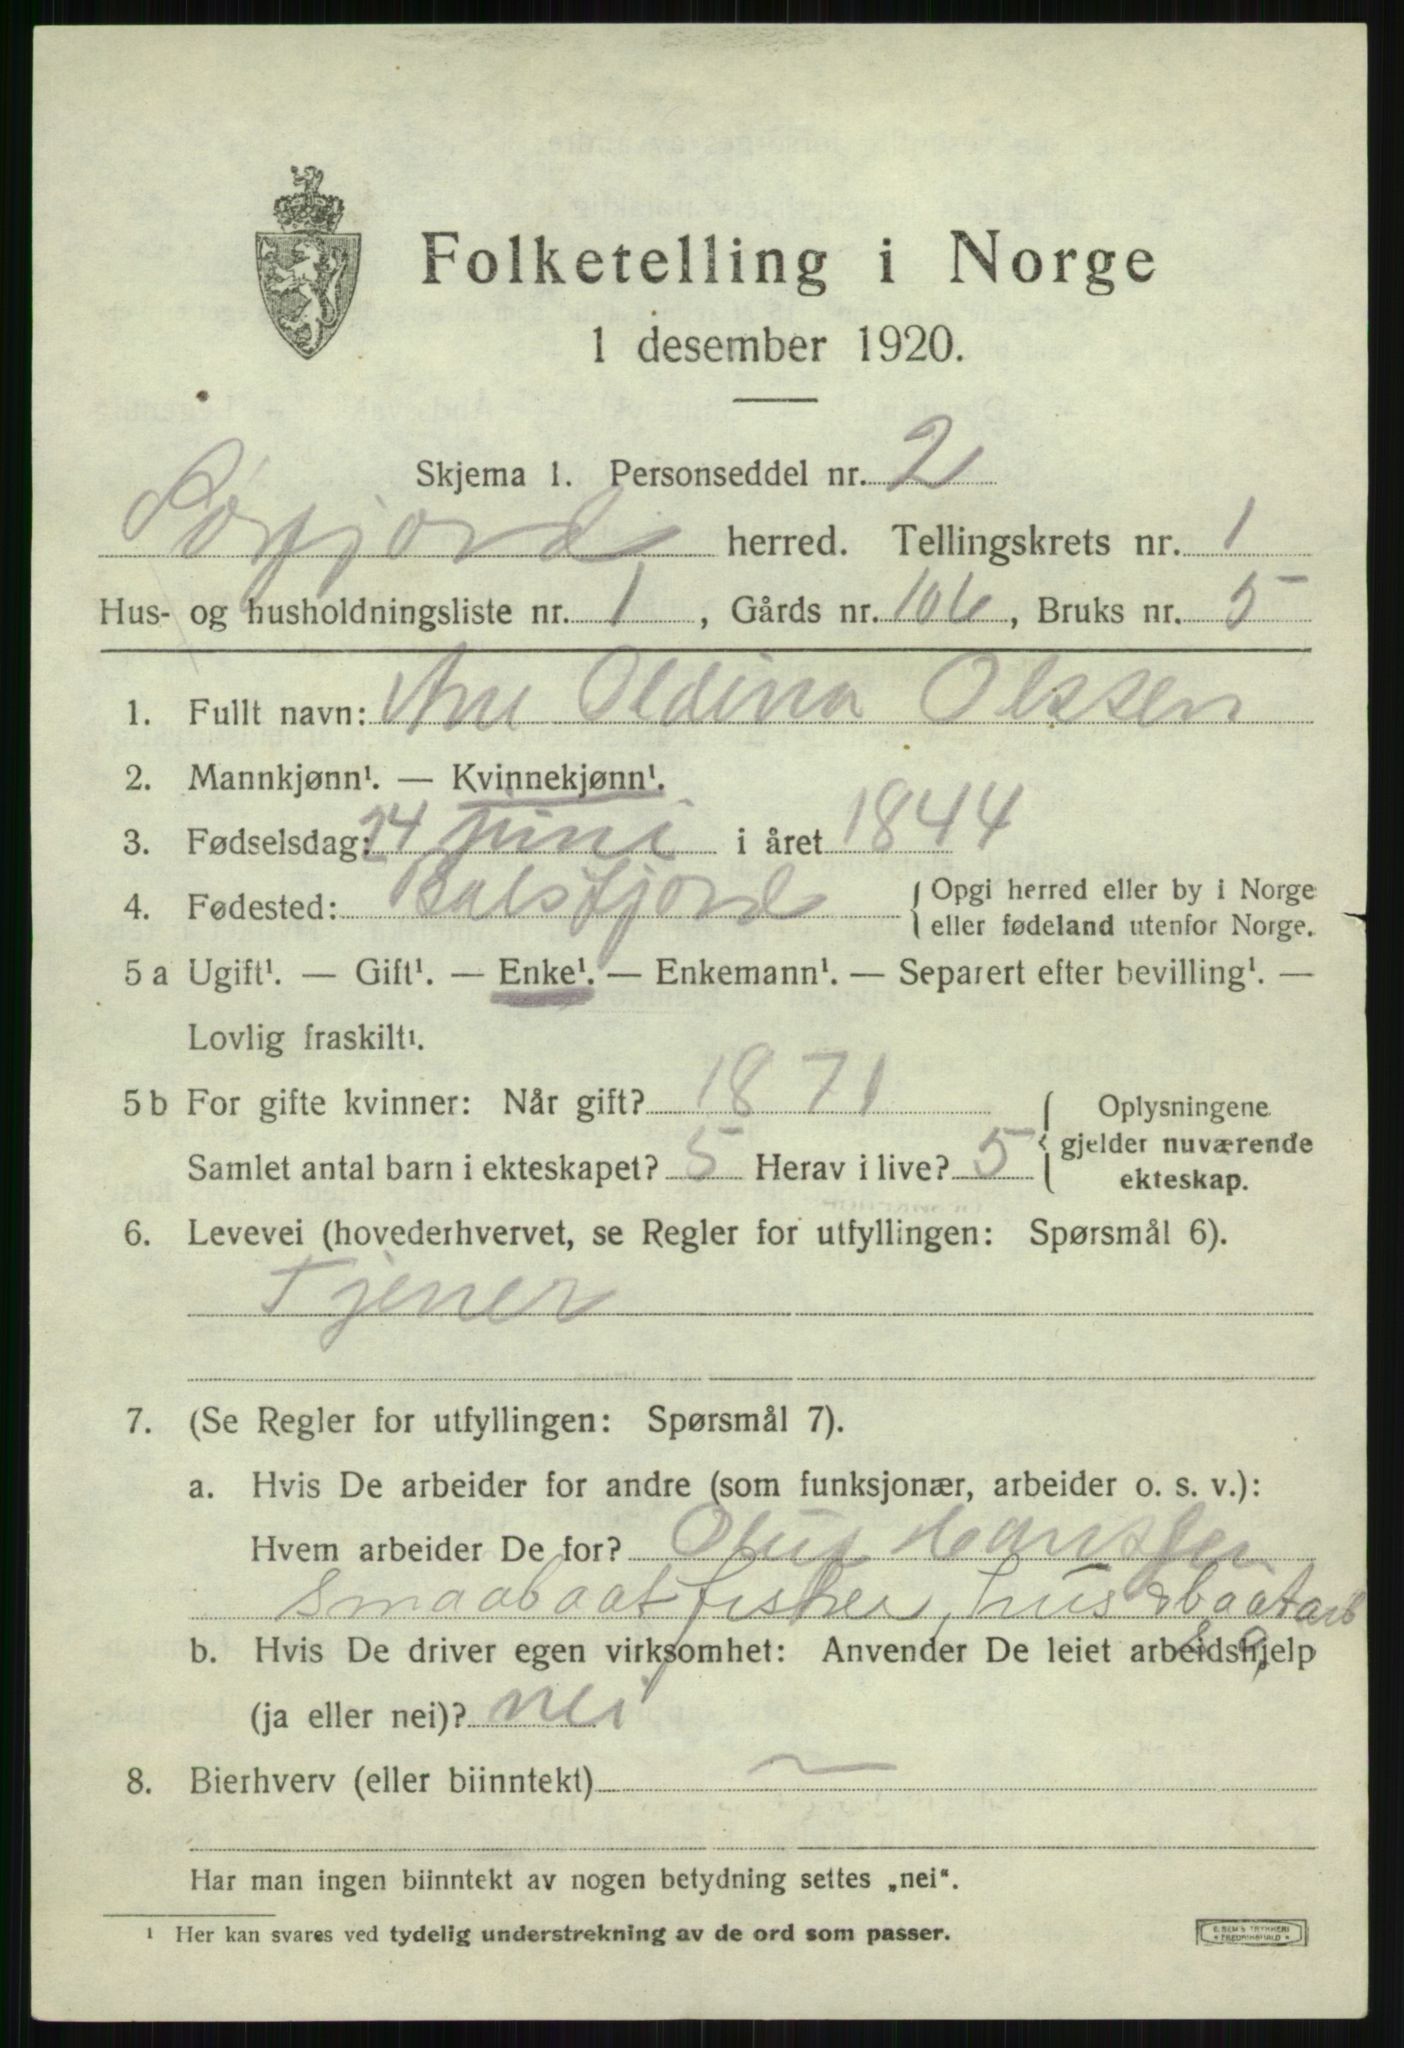 Folketelling i Norge
1 desember 1920.
Skjema 1. Personseddel nr. 2
Sørfjord herred. Tellingskrets nr. 1
Hus- og husholdningsliste nr. 1, Gårds nr. 106, Bruks nr. 5
1. Fullt navn: Ane Oldina Olssen
2. Mannkjønn¹. — Kvinnekjønn¹.
3. Fødselsdag: 24 juni i året 1844
4. Fødested: Balsfjord { Opgi herred eller by i Norge
eller fødeland utenfor Norge.
5 a Ugift¹. — Gift¹. — Enke¹. — Enkemann¹. — Separert efter bevilling¹. —
Lovlig fraskilt¹.
5 b For gifte kvinner: Når gift? 1871 { Oplysningene
gjelder nuværende
Samlet antal barn i ekteskapet? 5 Herav i live? 5
ekteskap.
6. Levevei (hovederhvervet, se Regler for utfyllingen: Spørsmål 6).
Tjener
7. (Se Regler for utfyllingen: Spørsmål 7).
a. Hvis De arbeider for andre (som funksjonær, arbeider o. s. v.):
Hvem arbeider De for? Hanssen
smaabaatfisker, hus & baatarb
b. Hvis De driver egen virksomhet: Anvender De leiet arbeidshjelp
(ja eller nei)? nei
8. Bierhverv (eller biinntekt) —
Har man ingen biinntekt av nogen betydning settes „nei“.
¹ Her kan svares ved tydelig understrekning av de ord som passer.
E. SEM'S TRYKKERI
* FREDRIKSHALD *